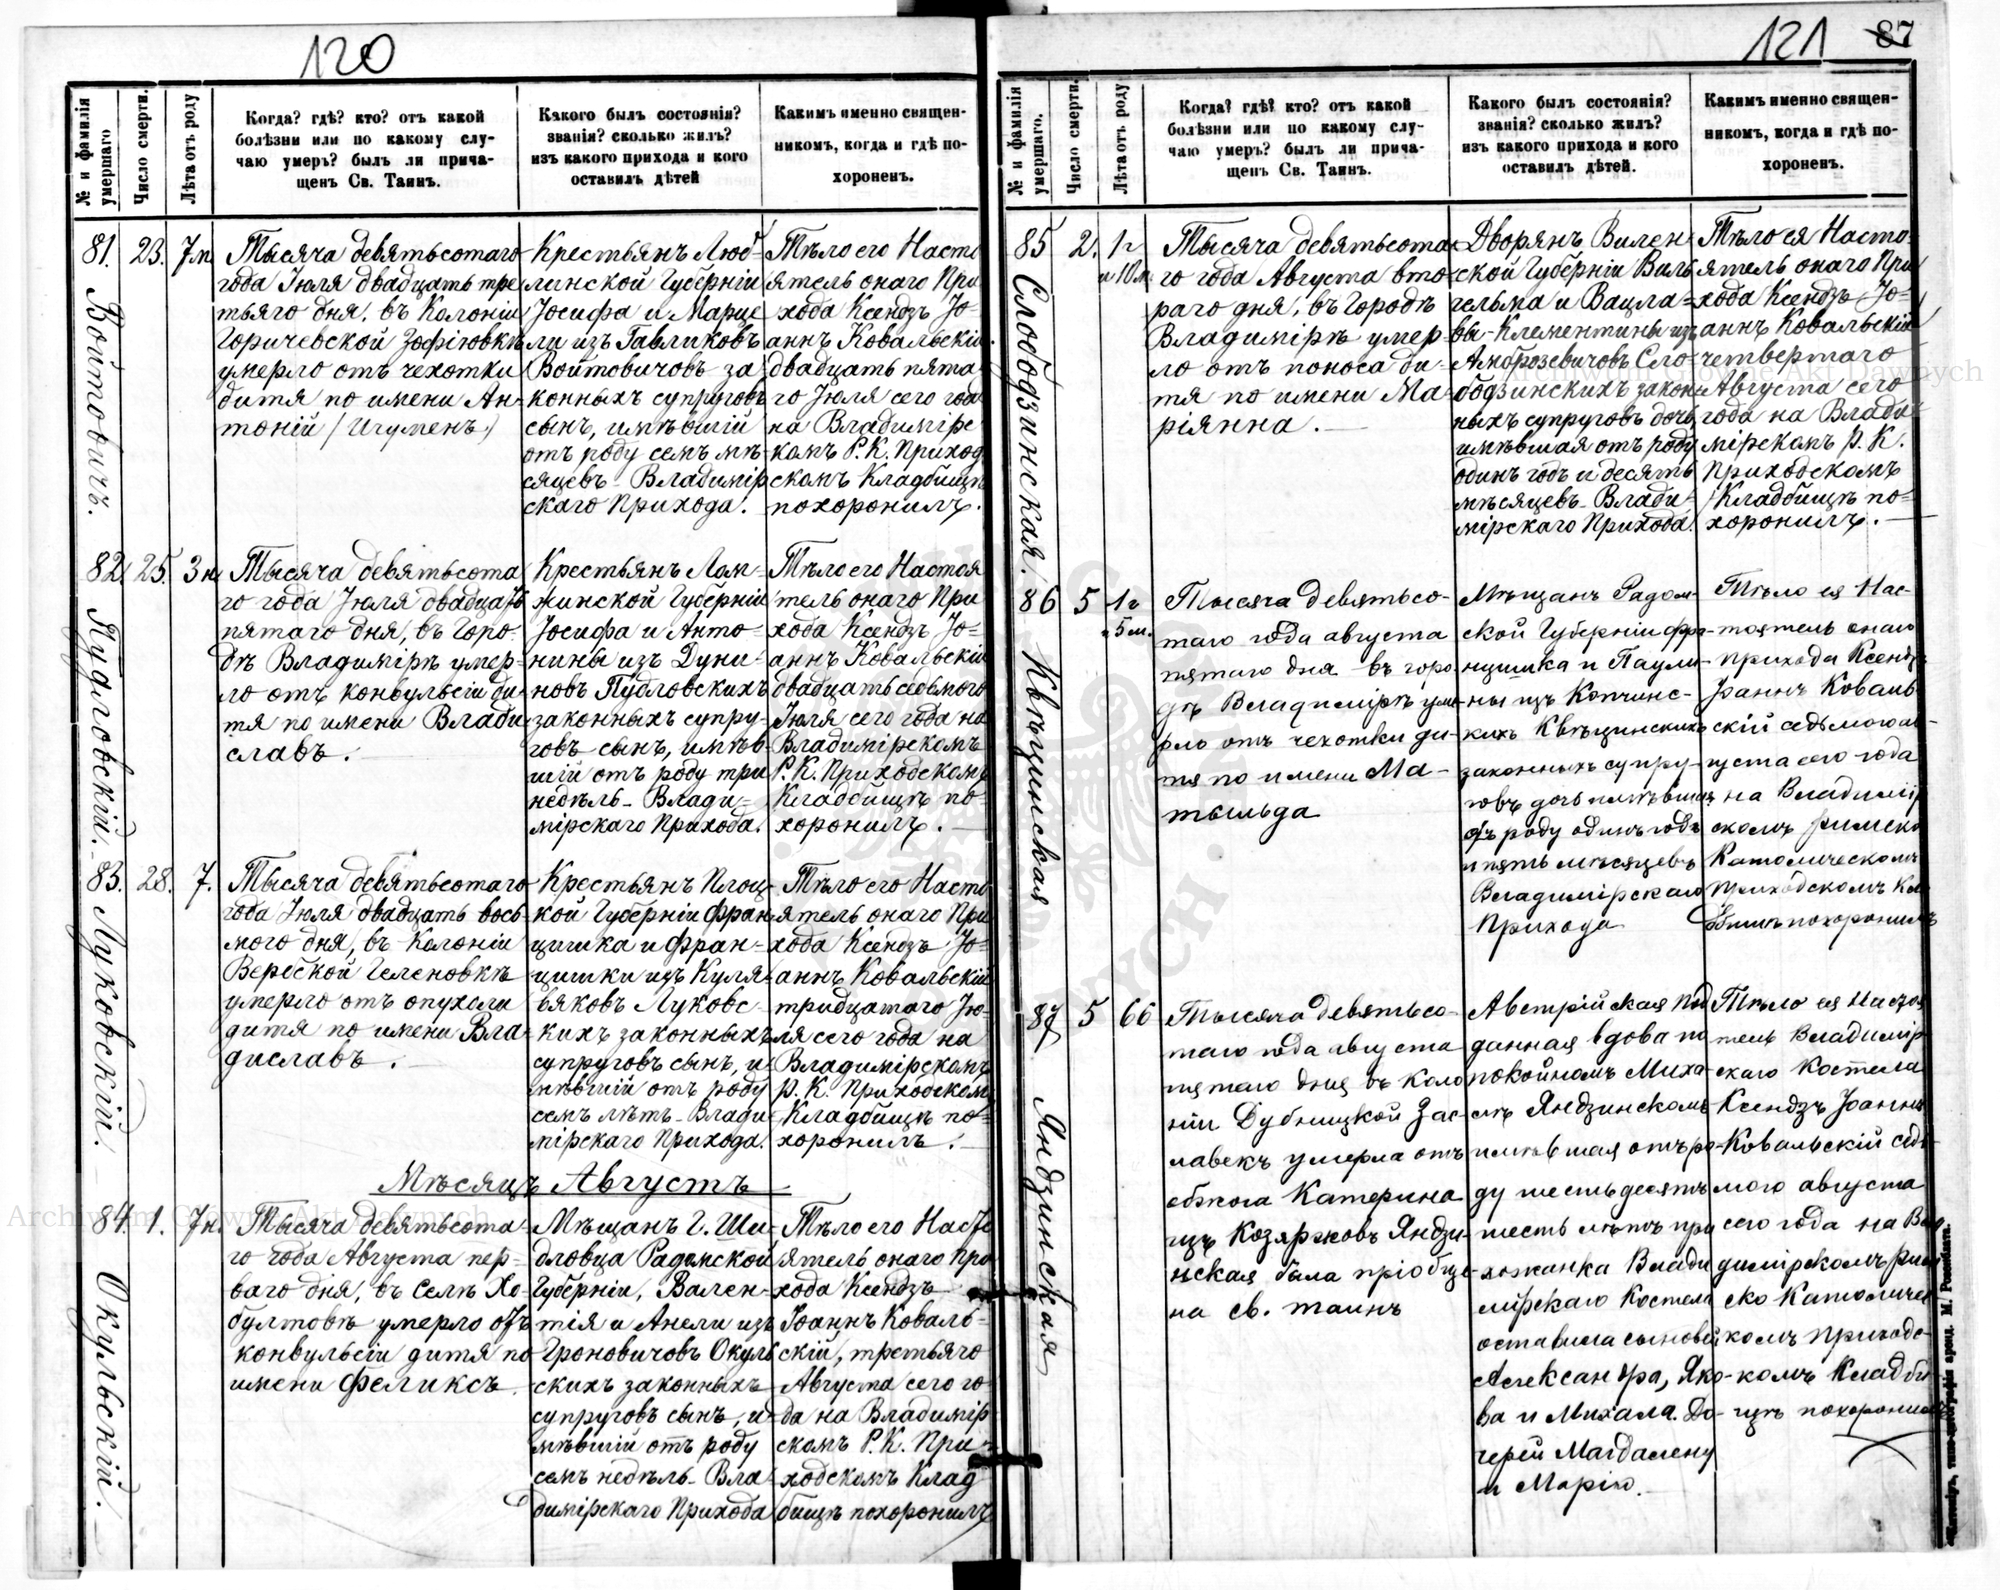 120
№ и фамилія умершаго
Число смерти.
Лѣта отъ роду
Когда? гдѣ? кто? отъ какой
болѣзни или по какому слу-
чаю умеръ? былъ ли прича-
щенъ Св. Таинъ.
Какого былъ состоянія?
званія? сколько жилъ?
изъ какого прихода и кого
оставилъ дѣтей
Какимъ именно священ-
никомъ, когда и гдѣ по-
хороненъ.
81.
Войтовичъ.
23.
7м
Тысяча девятьсотаго
года Іюля двадцать тре
тьяго дня, въ Колоніи
Горичевской Зофіювкѣ
умерло отъ чехотки
дитя по имени Ан-
тоній (Игуменъ)
Крестьянъ Люб-
линской Губерніи
Іосифа и Марце
ли изъ Гавликовъ
Войтовичовъ за
конныхъ супруговъ
сынъ, имѣвшій
отъ роду семъ мѣ-
сяцевъ - Владимір
скаго Прихода.
Тѣло его Насто
ятель онаго При
хода Ксендзъ Іо-
аннъ Ковальскій
двадцать пята-
го Іюля сего года
на Владимірс
комъ Р. К. Приход
скомъ Кладбищѣ
похоронилъ.
82.
Пудловскій.
25.
3н
Тысяча девятьсота
го года Іюля двадцать
пятаго дня, въ Горо-
дѣ Владимірѣ умер-
ло отъ конвульсіи ди-
тя по имени Влади
славъ.
Крестьянъ Лом-
жинской Губерніи
Іосифа и Анто-
нины изъ Дуни-
новъ Пудловскихъ
законныхъ супру-
говъ сынъ, имѣв-
шій отъ роду три
недѣль - Влади-
мірскаго Прихода.
Тѣло его Настоя
тель онаго При
хода Ксендзъ Іо-
аннъ Ковальскій
двадцать седьмого
Іюля сего года на
Владимірскомъ
Р. К. Приходскомъ
Кладбищѣ по-
хоронилъ.
83.
Луковскій.
28.
7.
Тысяча девятьсотаго
года Іюля двадцать вось
мого дня, въ Колоніи
Вербской Геленовкѣ
умерло отъ опухоли
дитя по имени Вла-
диславъ.
Крестьянъ Плоц-
кой Губерніи Фран
цишка и Фран-
цишки изъ Куля-
вяковъ Луковс-
кихъ законныхъ
супруговъ сынъ, и-
мѣвшій отъ роду
семъ лѣтъ - Влади
мірскаго Прихода.
Тѣло его Насто
ятель онаго При
хода Ксендзъ Іо-
аннъ Ковальскій
тридцатаго Ію-
ля сего года на
Владимірскомъ
Р. К. Приходскомъ
Кладбищѣ по-
хоронилъ.
Мѣсяцъ Августъ
84.
Окульскій.
1.
7н.
Тысяча девятьсота-
го года Августа пер-
ваго дня, въ Селѣ Хо-
булто­вѣ умерло отъ
конвульсіи дитя по
имени Феликсъ.
Мѣщанъ Г. Ши-
дловца Радомской
Губерніи, Вален-
тія и Анели изъ
Гроновичовъ Окуль
скихъ законныхъ
супруговъ сынъ, и-
мѣвшій отъ роду
семъ недѣль - Вла-
димірскаго Прихода
Тѣло его Насто
ятель онаго При
хода Ксендзъ
Іоаннъ Коваль-
скій, третьяго
Августа сего го-
да на Владимір
скомъ Р. К. При-
ходскомъ Клад
бищѣ похоронилъ
121
87
№ и фамилія умершаго.
Число смерти.
Лѣта отъ роду
Когда? гдѣ? кто? отъ какой
болѣзни или по какому слу-
чаю умеръ? былъ ли прича-
щенъ Св. Таинъ.
Какого былъ состоянія?
званія? сколько жилъ?
изъ какого прихода и кого
оставилъ дѣтей.
Какимъ именно священ-
никомъ, когда и гдѣ по-
хороненъ.
85
Слободзинская.
2.
1г
и 10м
Тысяча девятьсота-
го года Августа вто-
раго дня, въ Городѣ
Владимірѣ умер-
ло отъ поноса ди-
тя по имени Ма-
ріянна.
Дворянъ Вилен-
ской Губерніи Виль
гельма и Вацла-
вы-Клементины изъ
Амброзевичовъ Сло
бодзинскихъ закон
ныхъ супруговъ дочь
имѣвшая отъ роду
одинъ годъ и десять
мѣсяцевъ - Влади-
мірскаго Прихода.
Тѣло ея Насто-
ятель онаго При
хода Ксендзъ Іо-
аннъ Ковальскій
четвертаго
Августа сего
года на Влади
мірскомъ Р. К.
Приходскомъ
Кладбищѣ по-
хоронилъ.
86
Квѣцинская
5
1г
и 5м.
Тысяча девятьсо-
таго года августа
пятаго дня въ горо
дѣ Владимірѣ уме-
рло отъ чехотки ди-
тя по имени Ма-
тыльда
Мѣщанъ Радом-
ской Губерніи Фра-
нцишка и Паули-
ны изъ Копчинс-
кихъ Квѣцинскихъ
законныхъ супру-
говъ дочь имѣвшая
отъ роду одинъ годъ
и пять мѣсяцевъ
Владимірскаго
Прихода
Тѣло ея Нас-
тоятель онаго
прихода Ксендзъ
Іоаннъ Коваль-
скій седьмого ав-
густа сего года
на Владимір
скомъ римско
Католическомъ
приходскомъ Кла
дбищѣ похоронилъ
87
Яндзинская
5
66
Тысяча девятьсо-
таго года августа
пятаго дня въ коло
ніи Дубницкой Зас-
лавекъ умерла отъ
ожога Катерина
изъ Козярковъ Яндзи-
нская была пріобще-
на св. таинъ
Австрійская под
данная вдова по
покойномъ Миха
лѣ Яндзинскомъ
имѣвшая отъ ро-
ду шестьдесятъ
шесть лѣтъ при
хожанка Влади
мірскаго Костела
оставила сыновей
Александра, Яко-
ва и Михала. До-
черей Магдалену
и Марію.
Тѣло ея Настоя
тель Владимір
скаго Костела
Ксендзъ Іоаннъ
Ковальскій седь-
мого августа
сего года на Вла
димірскомъ рим
ско Католичес
комъ приходс-
комъ Кладби
щѣ похоронилъ
Archiwum Główne Akt Dawnych
Archiwum Główne Akt Dawnych